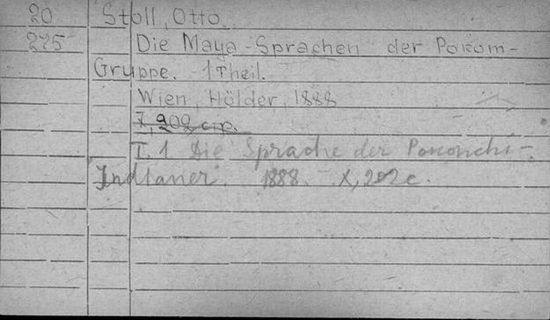 20 Stoll, Otto.
275 Die Maya-Sprachen der Pokom-
Gruppe. 1 Theil.
Wien, Hölder, 1888
T. 1 Die Sprache der Pokonchi-
Indianer. 1888. X, 202 c.